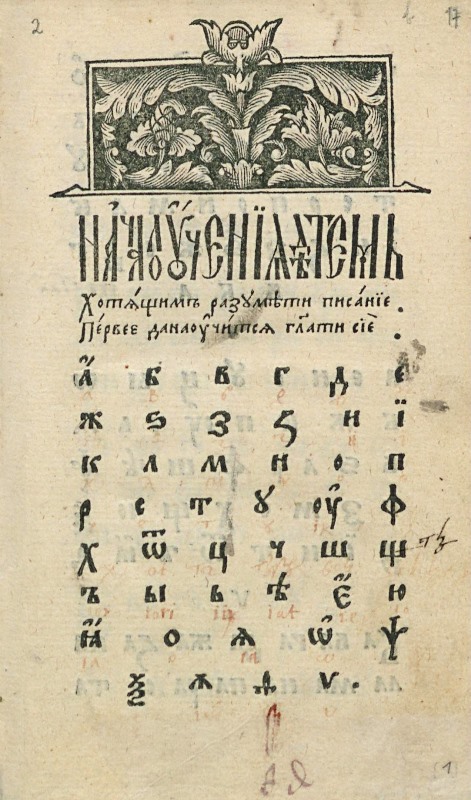 2
17
НАЧА́ЛО ОУ҆ЧЕ́НЇѦ ДѢ́ТЕМЪ
Хотѧ́щимъ разꙋмѣ́ти писа́нїе.
Пе́рвее да наоу҆чи́тсѧ гл҃ати сїѐ.
А҆ б в г д е
ж ѕ з ꙁ и ї
к л м н о п
р с т ꙋ оу҆ ф
х ѿ ц ч ш щ
ъ ы ь ѣ є҆ ю
ꙗ҆ о ѧ ѡ҆ ѱ
ѯ ѧ ѳ ѵ.
1